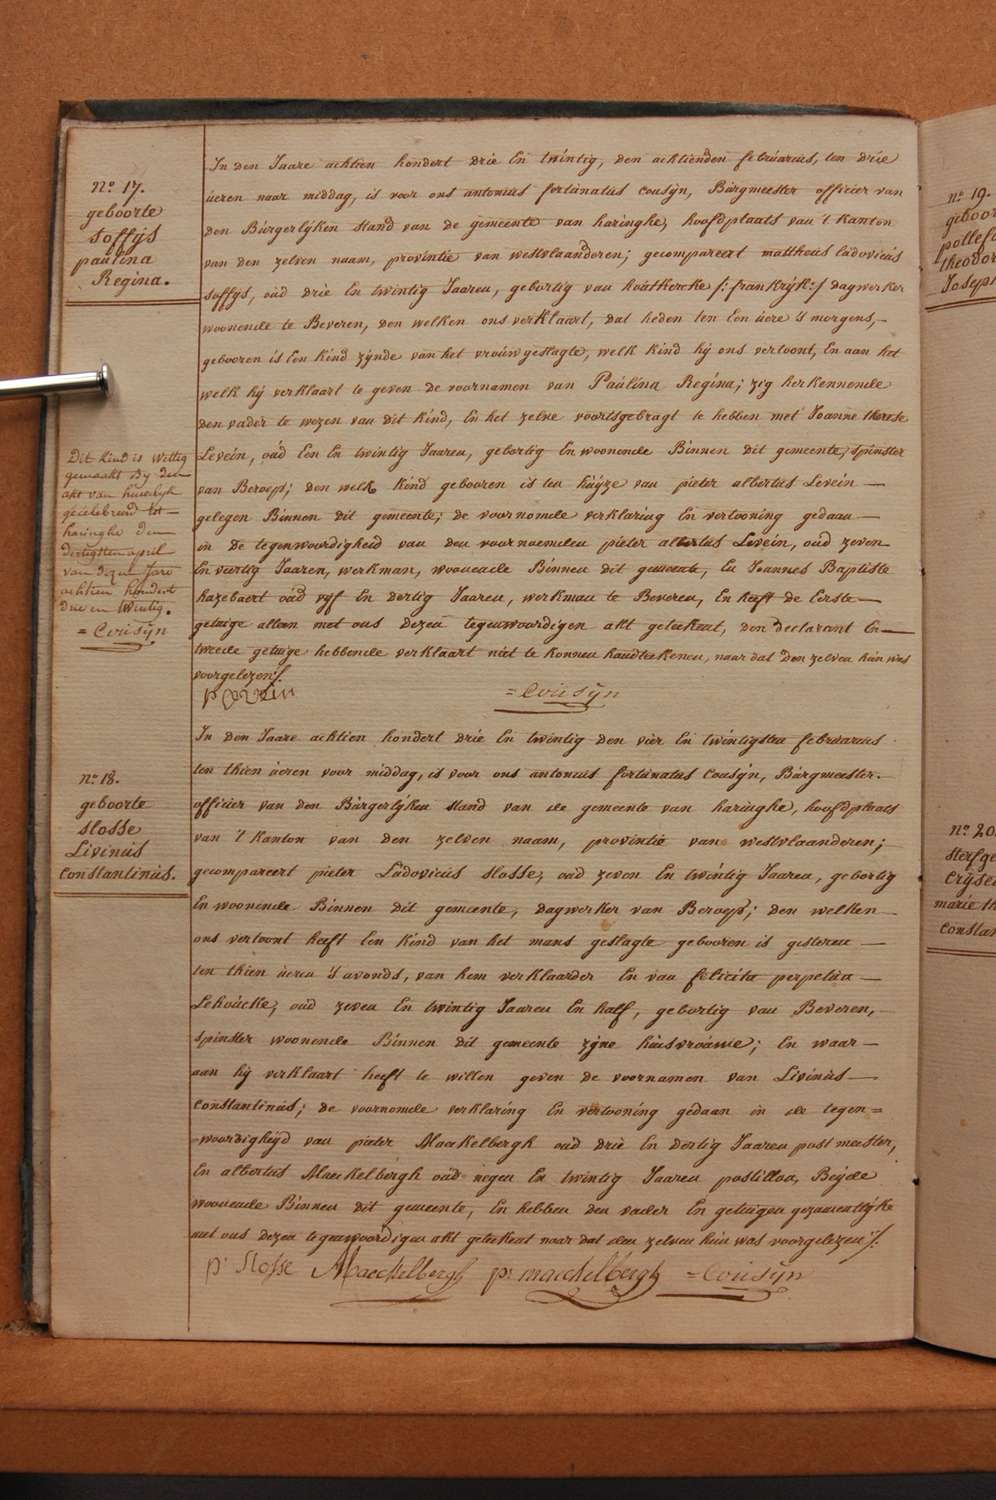 N.o 17.
geboorte
soffys
paulina
Regina.
In den Jaare achtien hondert drie En twintig, den achtienden februarius, ten drie
úeren naar middag, is voor ons antonius fortúnatus cousÿn, Búrgmeester officier van
den Búrgerlÿken stand van de gemeente van haringhe, hoofdplaats van 't kanton
van den zelven naam, provintie van westvlaanderen; gecompareert mattheus lúdovicús
soffÿs, oúd drie En twintig Jaaren, gebortig van hoútkercke /: frankrÿk :/ dagwerker
woonende te Beveren, den welken ons verklaart, dat heden ten Een úere 's morgens,
gebooren is Een kind zÿnde van het vroúwgeslagte, welk kind hÿ ons vertoont, En aan het
welk hÿ verklaart te geven de voornamen van Paúlina Regina; zig herkennende
den vader te wezen van dit kind, En het zelve voortsgebragt te hebben met Joanne therese
Levein, oúd Een En twintig Jaaren, gebortig En woonende Binnen dit gemeente, spinster
van Beroep; den welk kind gebooren is ten húÿze van pieter albertus Levein
gelegen Binnen dit gemeente; de voornomde verklaring En vertooning gedaan
in De tegenwoordigheid van den voornoemden pieter albertus Levein, oud zeven
En veertig Jaaren, werkman, woonende Binnen dit gemeente, En Joannes Baptiste
hazebaert oúd vÿf En dertig Jaaren, werkman te Beveren, En heeft de Eerste
getuige alleen met ons dezen tegenwoordigen akt geteekent, den declarant En
tweede getuige hebbende verklaart niet te konnen handteekenen, naar dat den zelven hún was
voorgelezen /.
Dit kind is wettig
gemaakt by den
akt van huwelyk
gecelebreerd tot
haringhe den
dertigsten april
van dezen Jare
achtien hondert
drie en twintig.
= Coúsÿn
= Coúsÿn
N.o 18.
geboorte
slosse
Livinús
Constantinús.
In den Jaare achtien hondert drie En twintig den vier En twintigsten februarus
ten thien úeren voor middag, is voor ons antonius fortúnatus Coúsÿn, Búrgmeester
officier van den Búrgerlÿken stand van de gemeente van haringhe, hoofdplaats
van 't kanton van den zelven naam, provintie van westvlaanderen;
gecompareert pieter Lúdovicus slosse, oud zeven En twintig Jaaren, gebortig
En woonende Binnen dit gemeente, dagwerker van Beroep; den welken
ons vertoont heeft Een kind van het mans geslagte gebooren is gisteren
ten thien úeren 's avonds, van hem verklaarder En van felicita perpetúa
Lehoúcke, oud zeven En twintig Jaaren En half, gebortig van Beveren,
spinster woonende Binnen dit gemeente zÿne húisvroúwe; En waar
aan hÿ verklaart heeft te willen geven de voornamen van Livinús
Constantinús; de voornomde verklaring En vertooning gedaan in de tegen=
woordighÿd van pieter Maeckelbergh oud drie En dertig Jaaren postmeester,
En albertus Maeckelbergh oúd negen En twintig Jaaren postillon, Beÿde
woonende Binnen dit gemeente, En hebben den vader En getuigen gezamentlÿke
met ons dezen tegenwoordigen akt geteekent naar dat den zelven hun was voorgelezen /.
p.r Slosse Maeckelbergh p. maeckelbergh = Coúsÿn
n.o 19.
n.o 20.